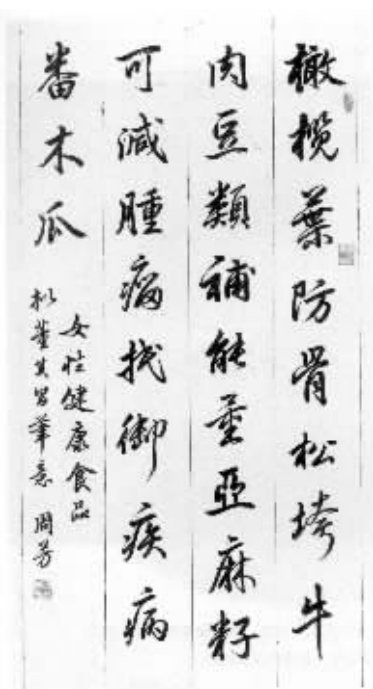 橄榄葉防骨松垮牛
肉豆類補能量亞麻籽
可減腫瘤抗御疾病
番木瓜
女性健康食品
拟董其昌筆意 周芳